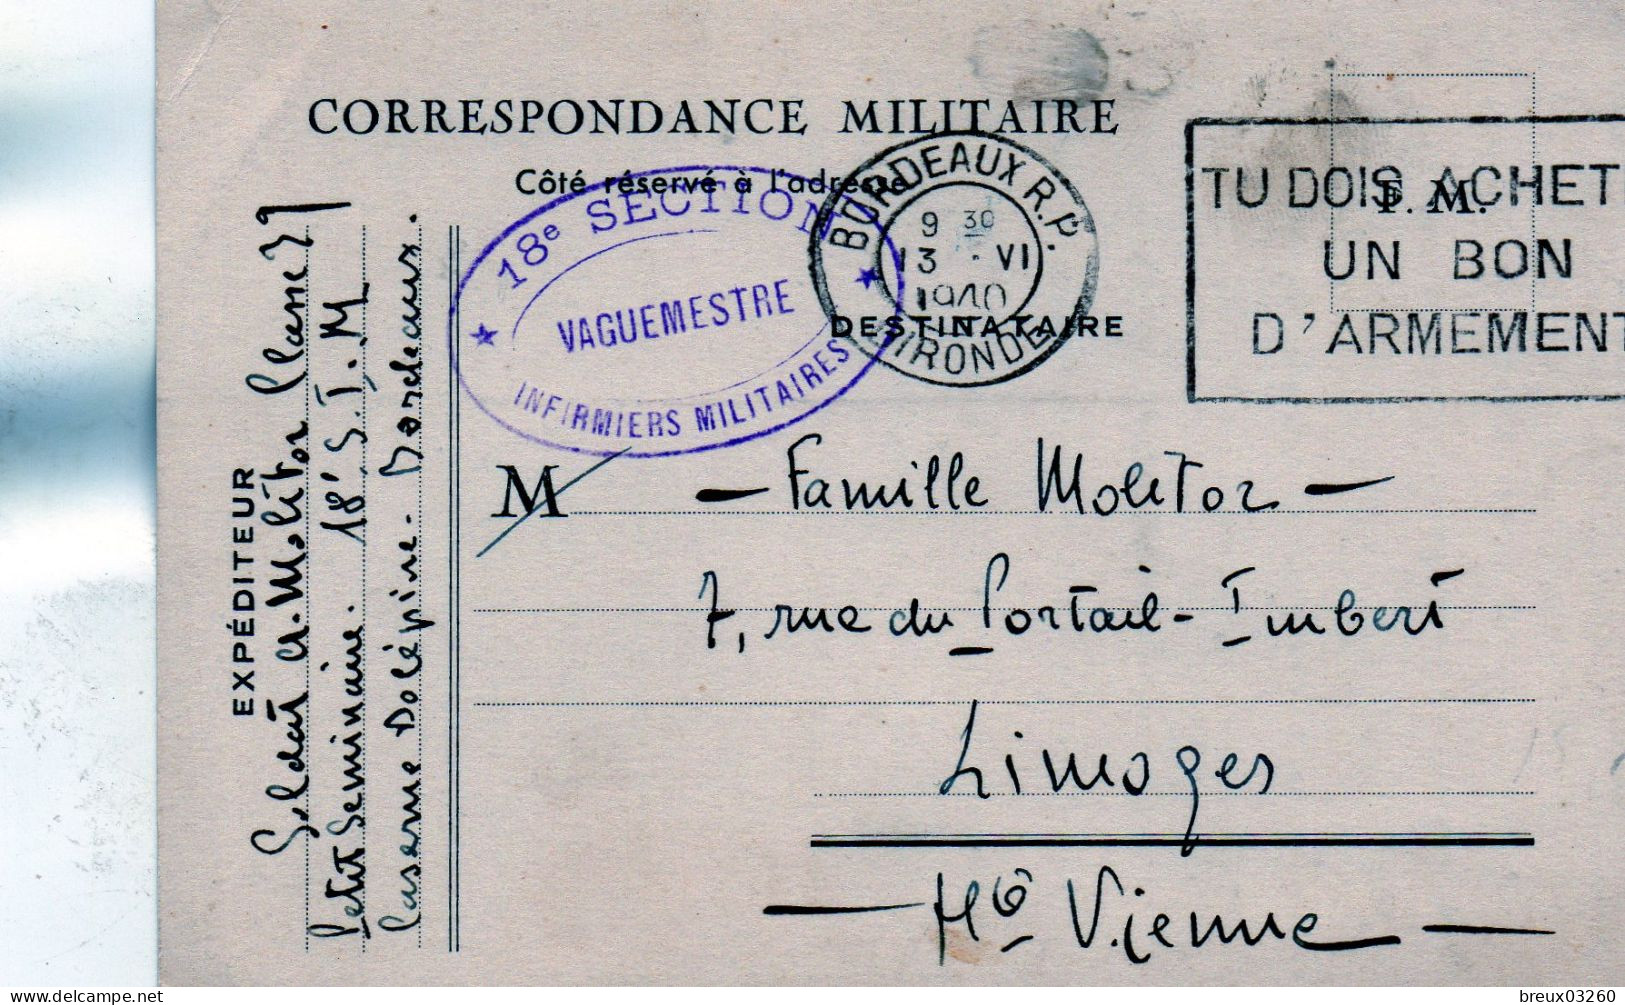 CORRESPONDANCE MILITAIRE
Côté réservé à l'adresse
F. M.
TU DOIS ACHET
UN BON
D'ARMEMENT
BORDEAUX R.P.
9 30
13 . VI
1940
GIRONDE
18e SECTION
VAGUEMESTRE
INFIRMIERS MILITAIRES
DESTINATAIRE
M — Famille Molitor —
7, rue du Portail-Imbert
Limoges
— Hte Vienne —
EXPÉDITEUR
Soldat A. Molitor
Petit Seminaire. 18e S.I.M
Caserne Dolépine. Bordeaux.
delcampe.net
breux03260